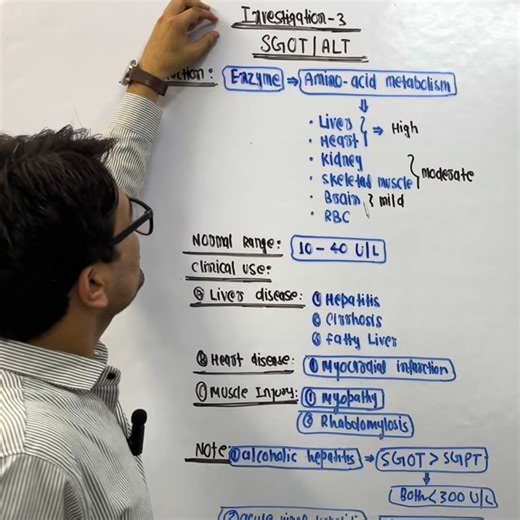 Investigation-3
SGOT/ALT
Enzyme ⇒ Amino-acid metabolism
⇓
· Liver } ⇒ High
· Heart
· Kidney } moderate
· Skeletal muscle
· Brain } mild
· RBC
Normal Range: 10 – 40 U/L
Clinical use:
ⓐ Liver disease: ① Hepatitis
② Cirrhosis
③ Fatty Liver
ⓑ Heart disease: ① Myocrodial infarction
ⓒ Muscle Injury: ① Myopathy
② Rhabdomylosis
Note: ① alcoholic hepatitis → SGOT > SGPT
↓
Both < 300 U/L